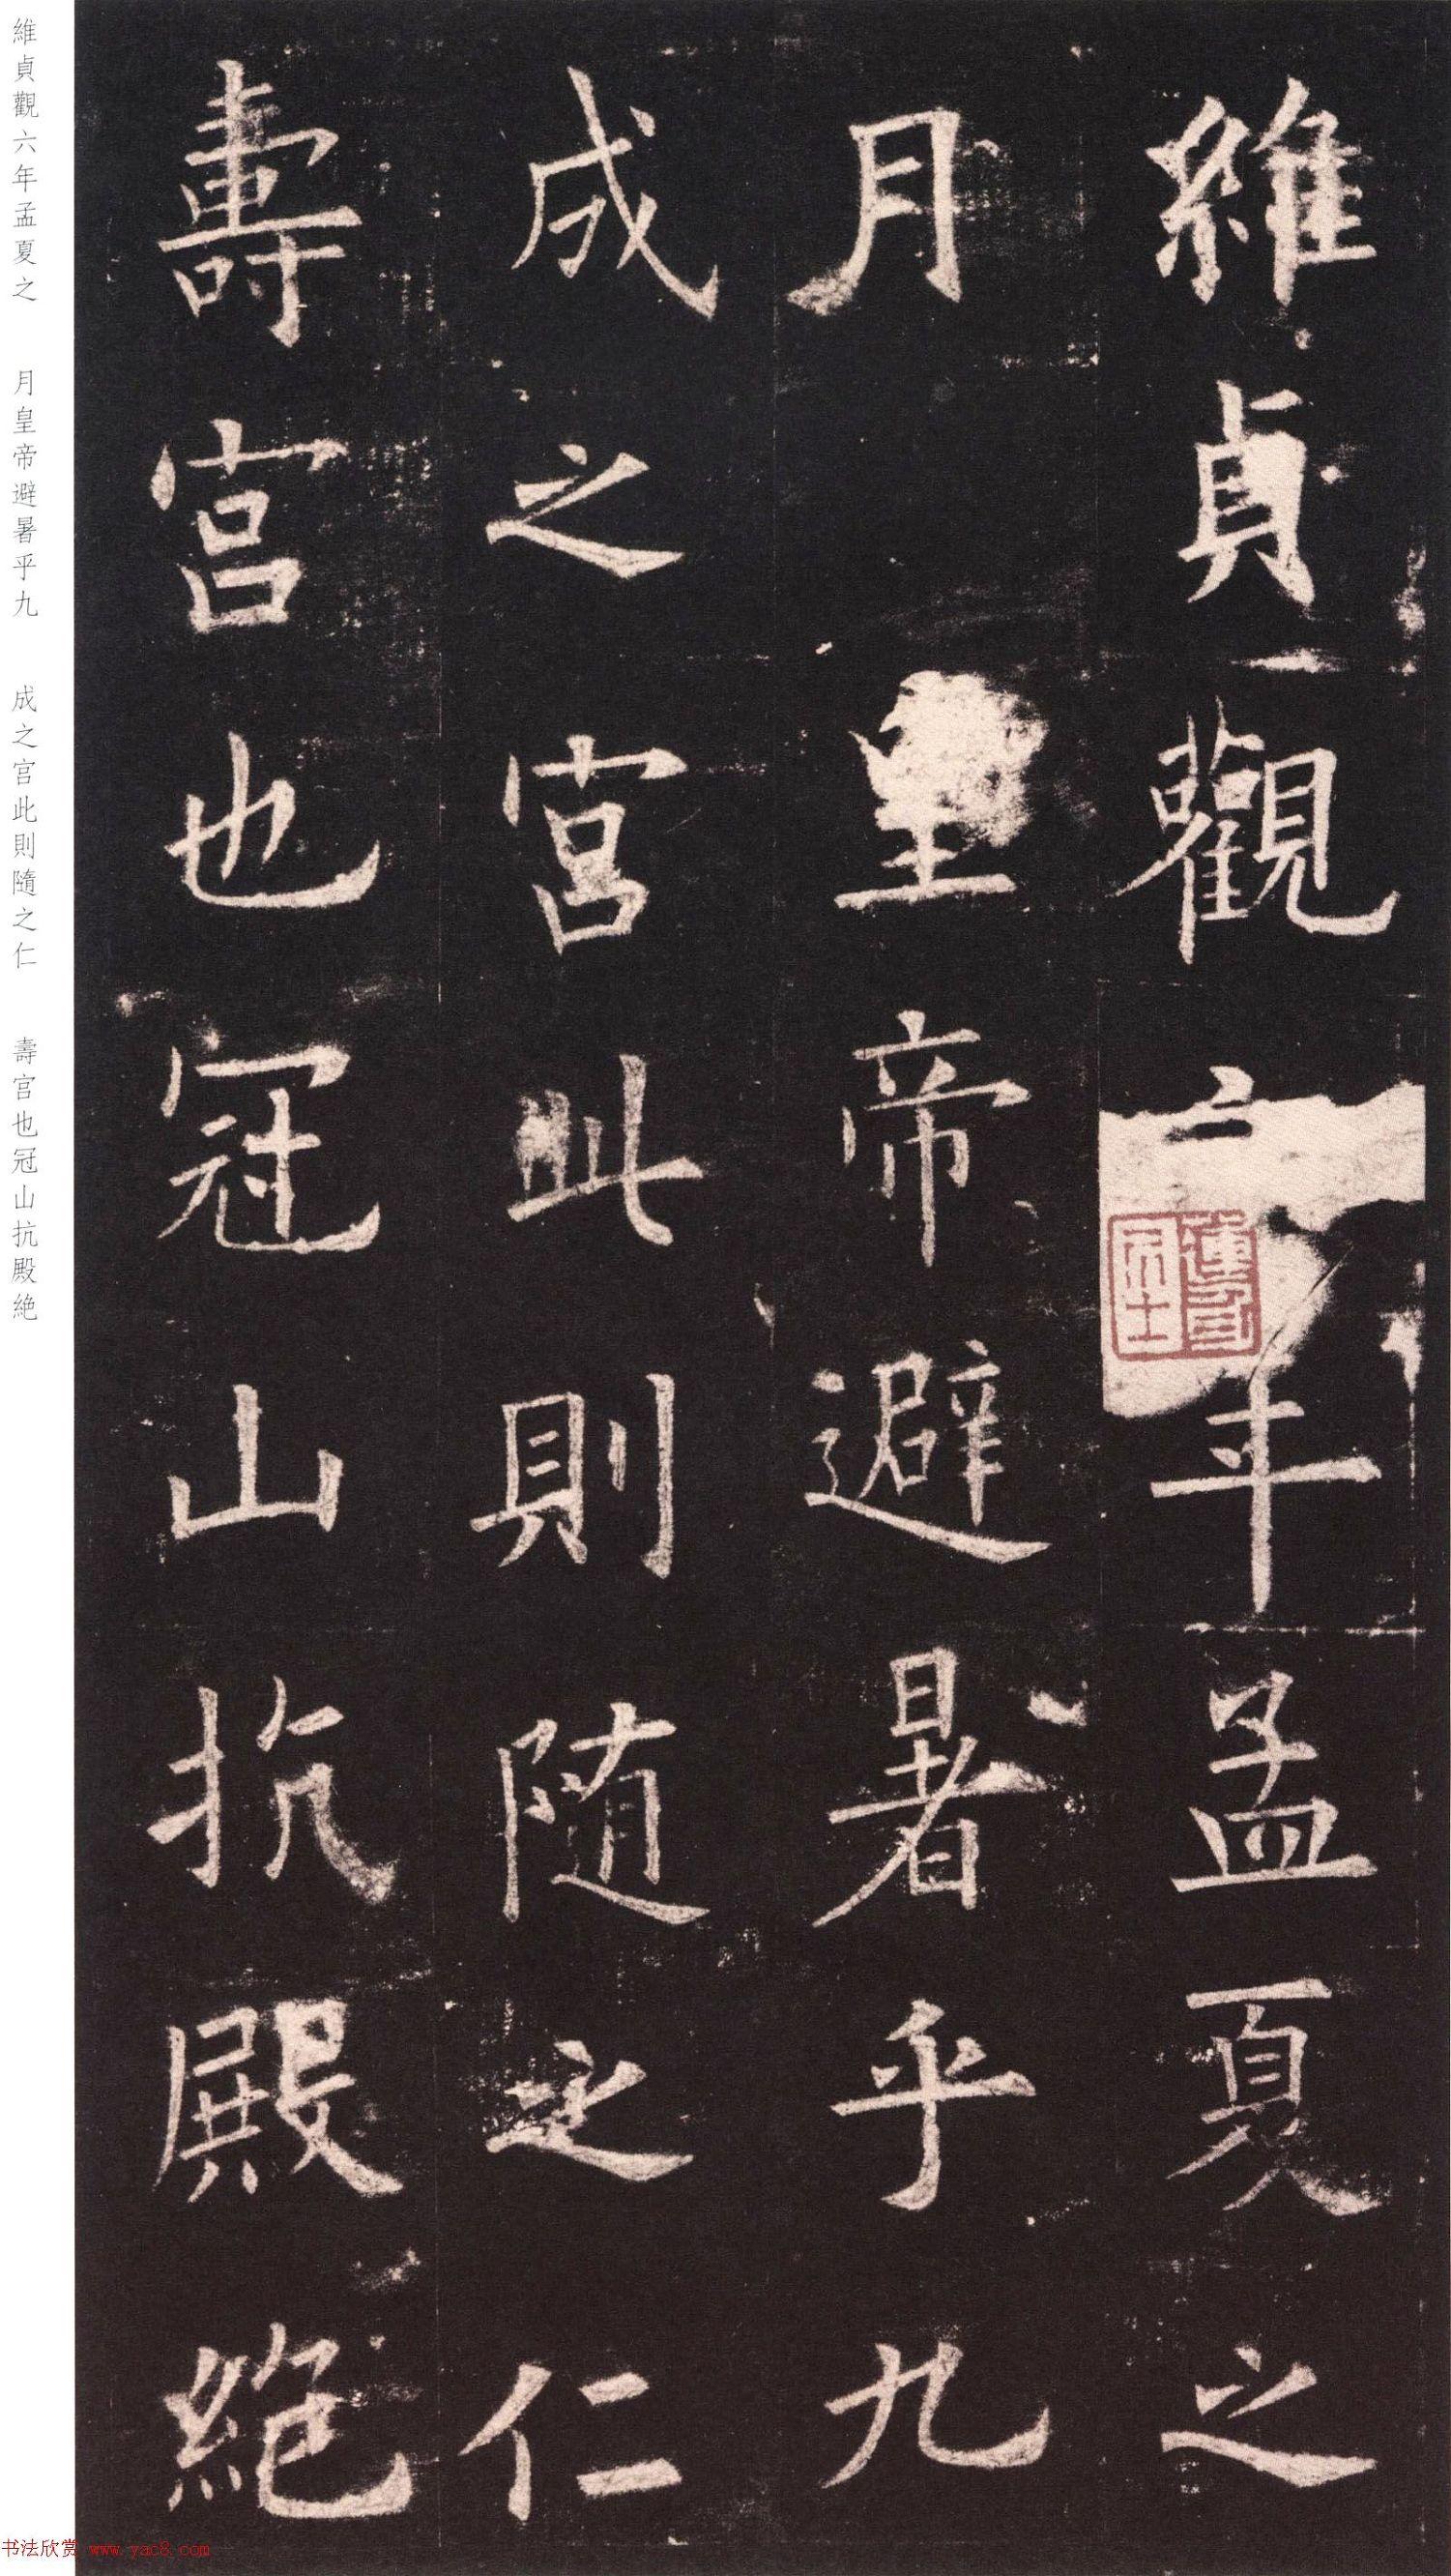 維貞觀六年孟夏之
月皇帝避暑乎九
成之宮此則隨之仁
壽宮也冠山抗殿絕
維貞觀六年孟夏之 月皇帝避暑乎九 成之宮此則隨之仁 壽宮也冠山抗殿絶
书法欣赏 www.yac8.com